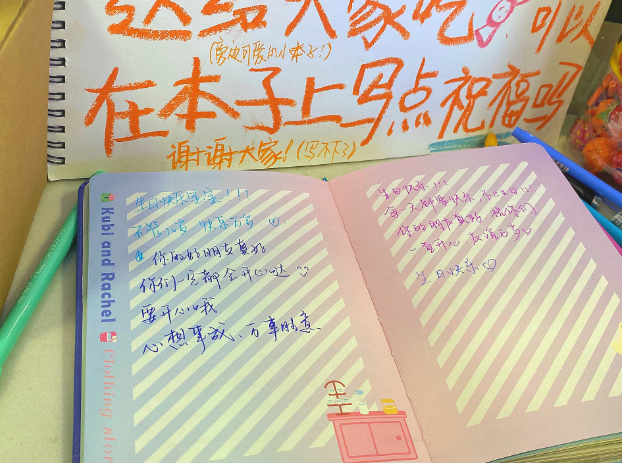 送给大家吃 可以
(写中可爱的小本子!)
在本子上写点祝福吗
谢谢大家!(写不下了)
生日快乐宝宝!!!
不管几岁 快乐万岁 ♡
你的好朋友真好
你们一定都会开心哒
要开心哦
心想事成、万事胜意
Kubi and Rachel
Clothing stor
生日快乐!!!
每一天都要快乐 不止生日!!
你的朋友真好 祝你们
一直开心 友谊万岁♡
生日快乐♡